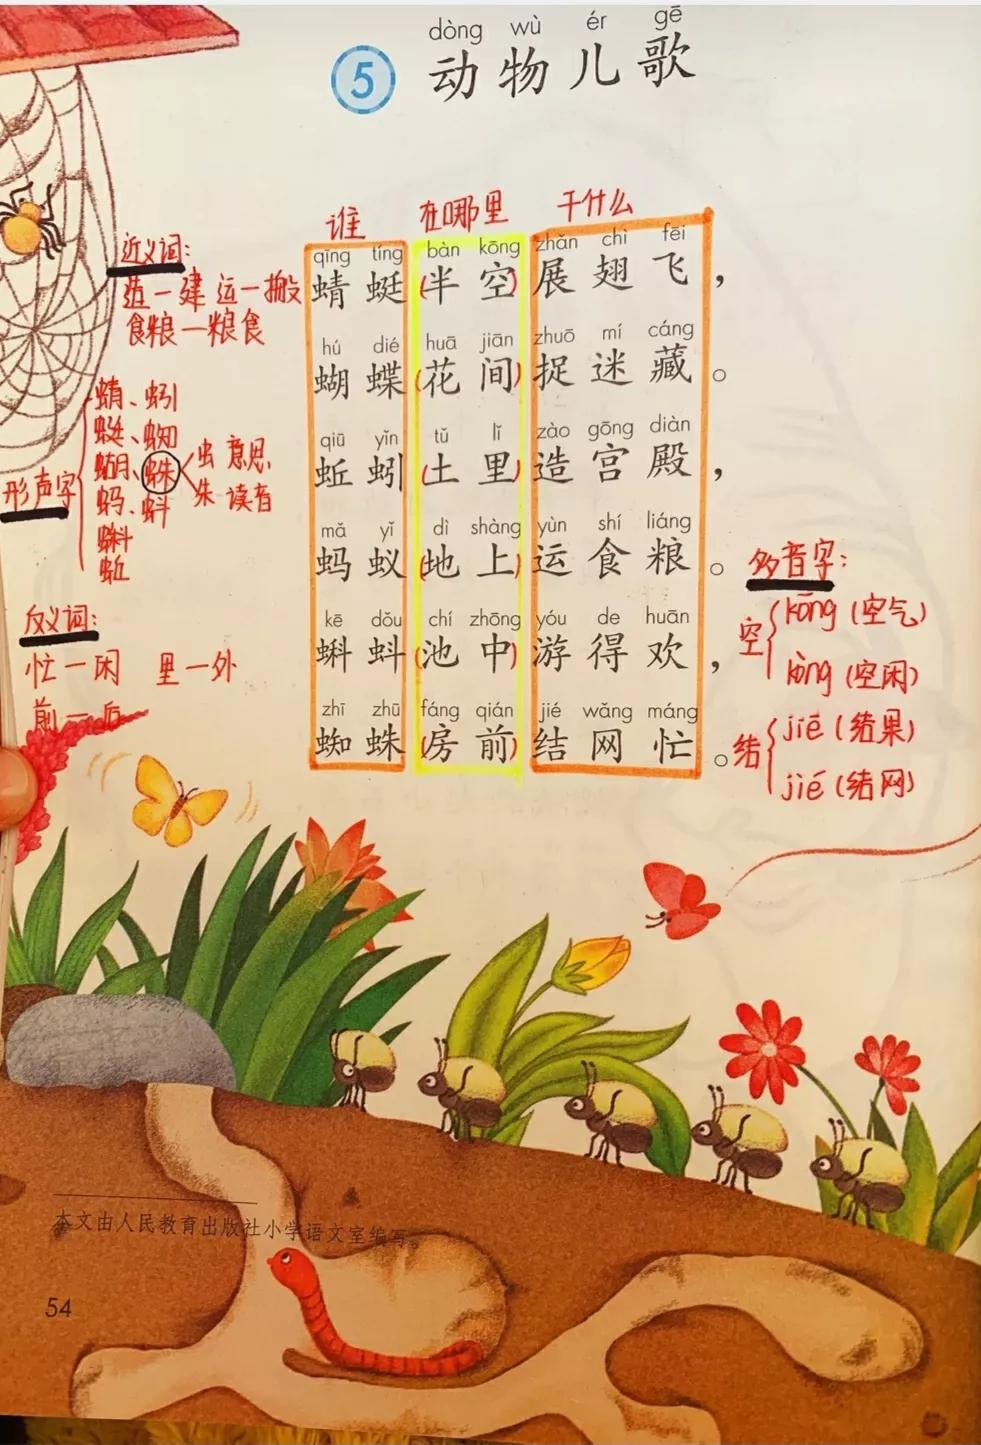 dòng wù ér gē
5 动物儿歌
谁 在哪里 干什么
qīng tíng bàn kōng zhǎn chì fēi
蜻蜓(半空)展翅飞，
hú dié huā jiān zhuō mí cáng
蝴蝶(花间)捉迷藏。
qiū yǐn tǔ lǐ zào gōng diàn
蚯蚓(土里)造宫殿，
mǎ yǐ dì shàng yùn shí liáng
蚂蚁(地上)运食粮。
kē dǒu chí zhōng yóu de huān
蝌蚪(池中)游得欢，
zhī zhū fáng qián jié wǎng máng
蜘蛛(房前)结网忙。
近义词:
造一建 运一搬
食粮一粮食
形声字
蜻、蚓
蜓、蜘
蝴、蛛 虫 意思
朱 读音
蚂、蚪
蝌
蚯
反义词:
忙一闲 里一外
前一后
多音字:
空 kōng (空气)
kòng (空闲)
结 jiē (结果)
jié (结网)
本文由人民教育出版社小学语文室编写。
54